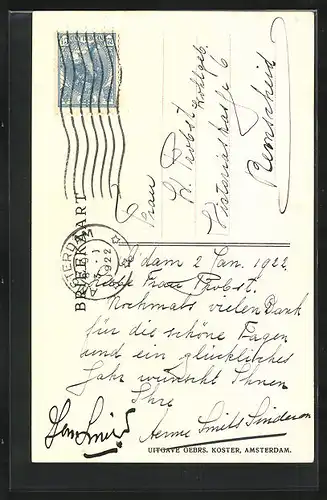 Frau
H. Probst Wohlgeb.
Victoriastrasse 6
Remscheid
BRIEFKAART
AMSTERDAM
1922
A'dam 2 Jan. 1922.
Liebe Frau Probst.
Nochmals vielen Dank
für die schöne Tagen
und ein glückliches
Jahr wünscht Ihnen
Ihre
Smits
UITGAVE GEBRS. KOSTER, AMSTERDAM.